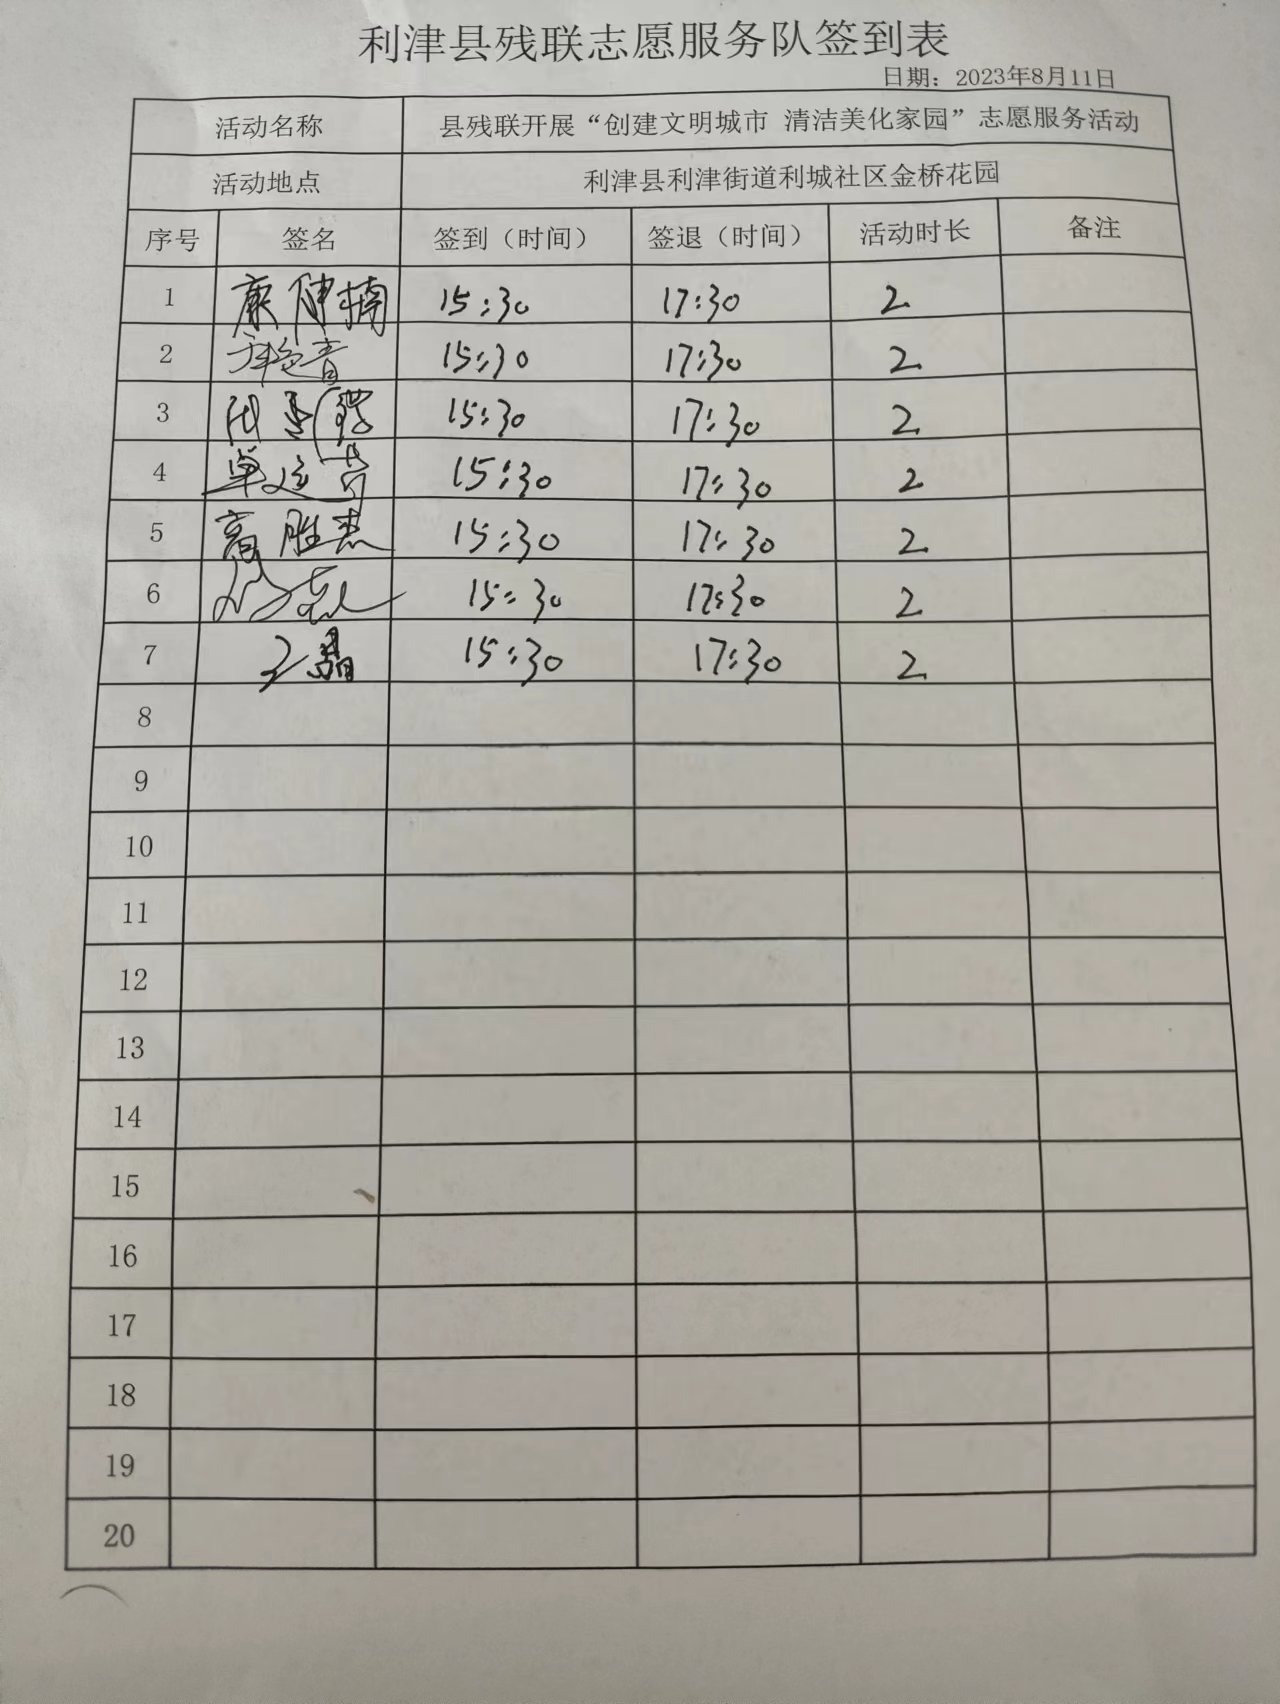 利津县残联志愿服务队签到表
日期：2023年8月11日
活动名称 县残联开展“创建文明城市 清洁美化家园”志愿服务活动
活动地点 利津县利津街道利城社区金桥花园
序号 签名 签到（时间） 签退（时间） 活动时长 备注
1 康健楠 15:30 17:30 2
2 15:30 17:30 2
3 15:30 17:30 2
4 15:30 17:30 2
5 高胜杰 15:30 17:30 2
6 15:30 17:30 2
7 王晶 15:30 17:30 2
8
9
10
11
12
13
14
15
16
17
18
19
20